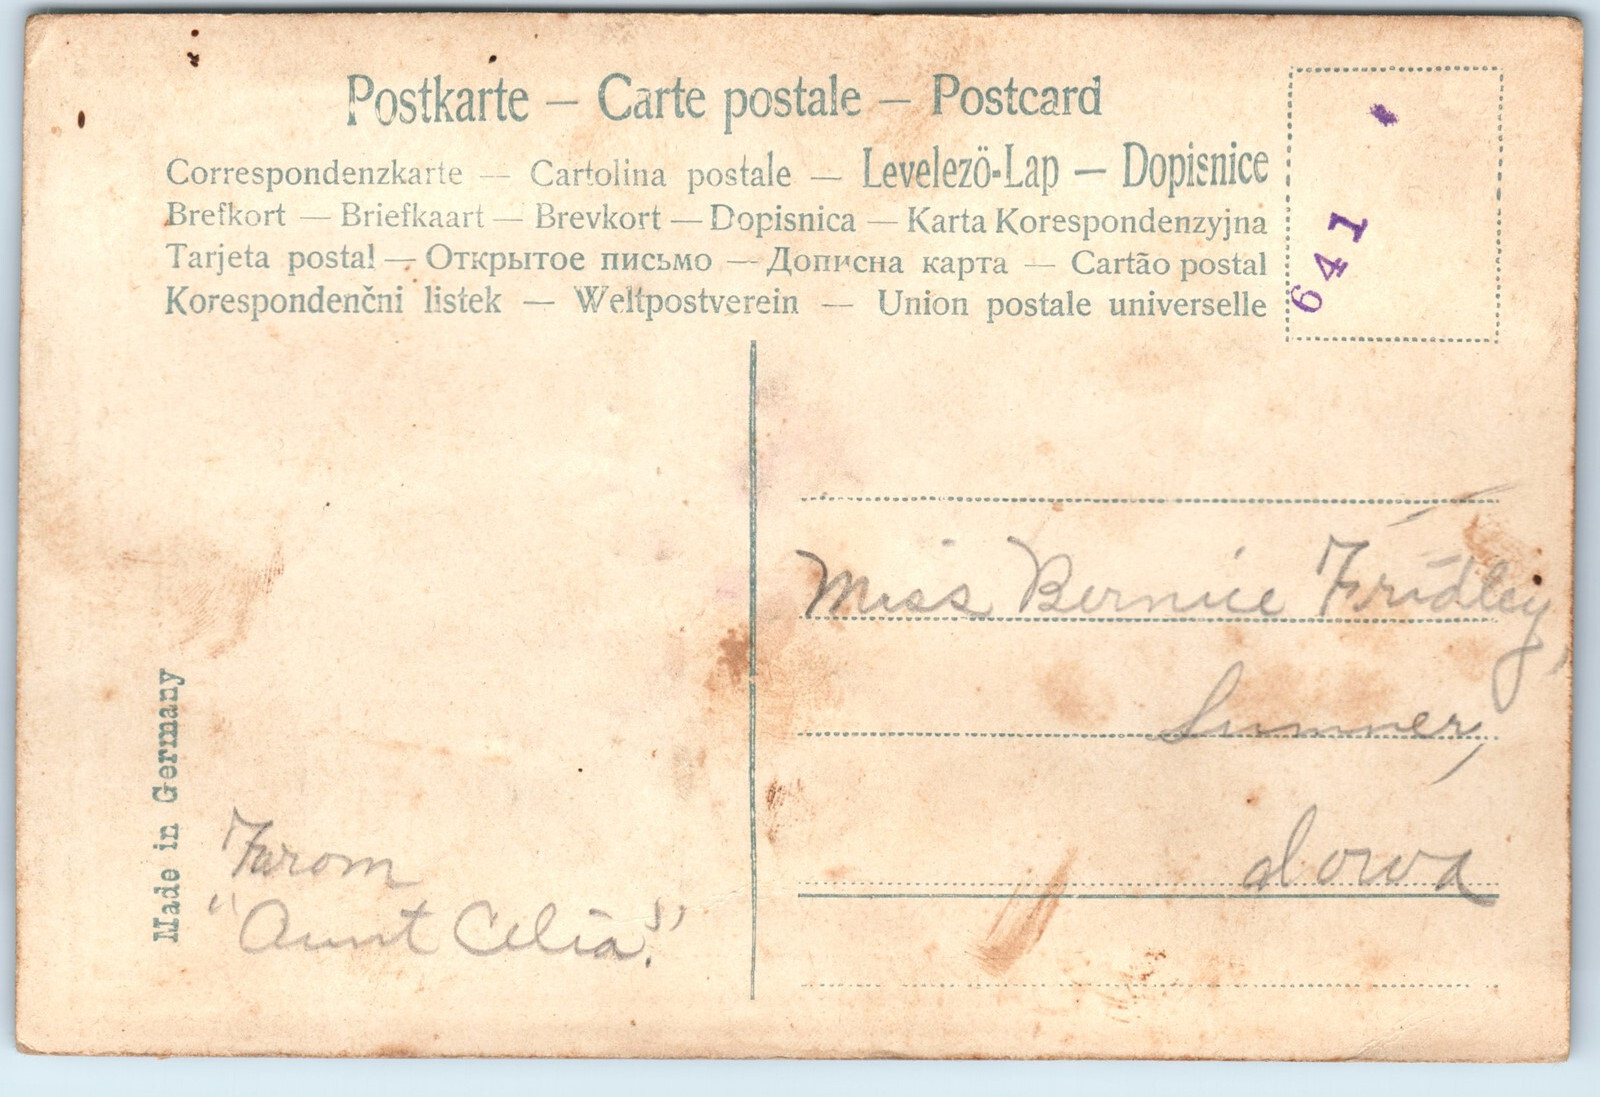 Postkarte — Carte postale — Postcard
Correspondenzkarte — Cartolina postale — Levelezö-Lap — Dopisnice
Brefkort — Briefkaart — Brevkort — Dopisnica — Karta Korespondenzyjna
Tarjeta postal — Открытое письмо — Дописна карта — Cartão postal
Korespondenčni listek — Weltpostverein — Union postale universelle
641
Miss Bernice Fridley,
Sumner,
Iowa
Made in Germany
From
"Aunt Celia."